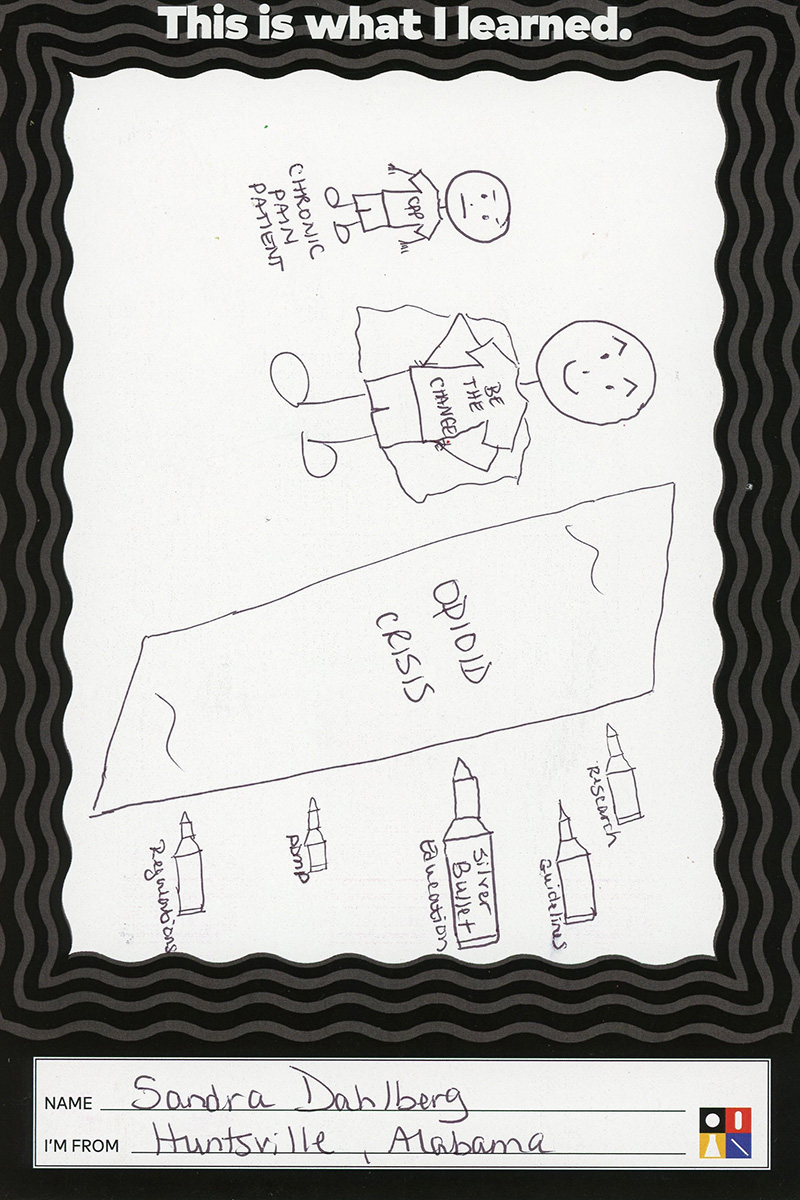 This is what I learned.
CHRONIC
PAIN
PATIENT
CPP
BE
THE
CHANGE
OPIOID
CRISIS
Research
Guidelines
Silver
Bullet
Education
PDMP
Regulations
NAME Sandra Dahlberg
I'M FROM Huntsville, Alabama